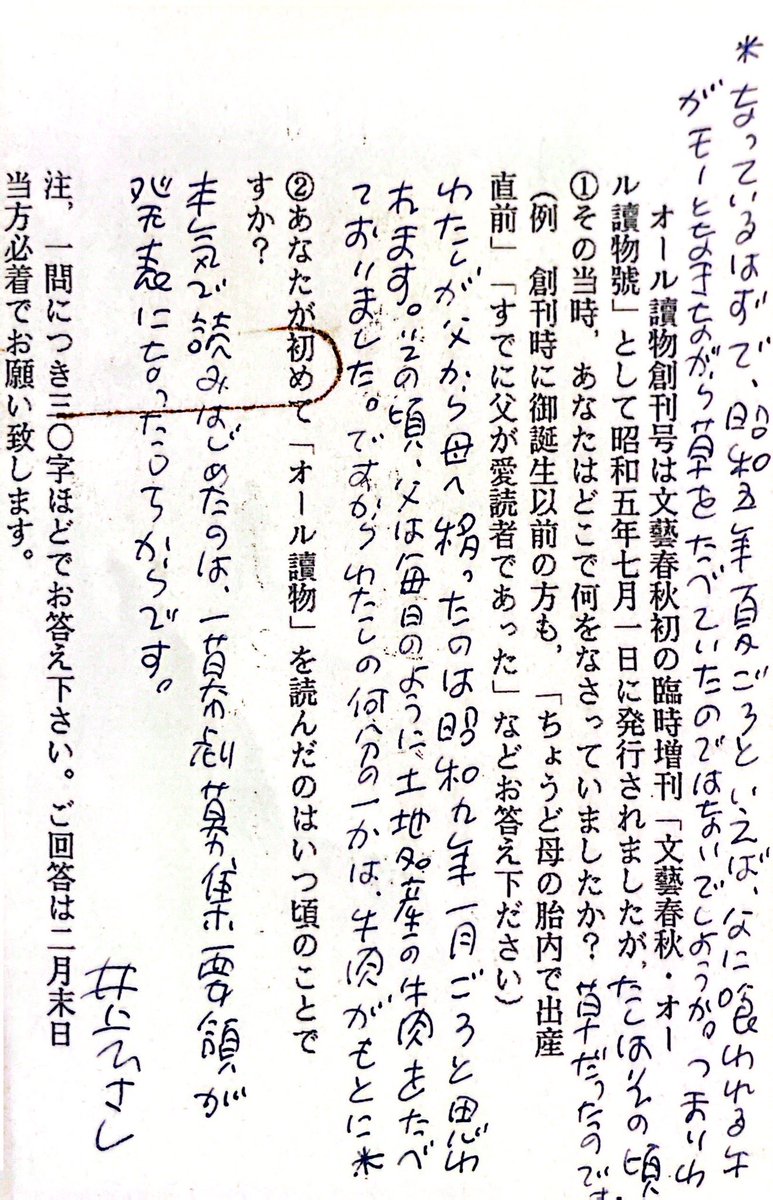 *なっているはずで、昭和五年夏ごろといえば、なに喰われる牛
がモーとなきながら草をたべていたのではないでしょうか。つまりわ
たしはその頃
草だったのです。
オール讀物創刊号は文藝春秋初の臨時増刊「文藝春秋・オー
ル讀物號」として昭和五年七月一日に発行されましたが、
①その当時、あなたはどこで何をなさっていましたか?
(例 創刊時に御誕生以前の方も、「ちょうど母の胎内で出産
直前」「すでに父が愛読者であった」などお答え下ださい)
わたしが父から母へ移ったのは昭和九年一月ごろと思わ
れます。その頃、父は毎日のように土地産の牛肉をたべ
ておりました。ですからわたしの何分の一かは、牛肉がもとに*
②あなたが初めて「オール讀物」を読んだのはいつ頃のことで
すか?
本気で読みはじめたのは、一幕劇募集要領が
発表になったころからです。
注,一問につき三〇字ほどでお答え下さい。ご回答は二月末日
当方必着でお願い致します。
井上ひさし